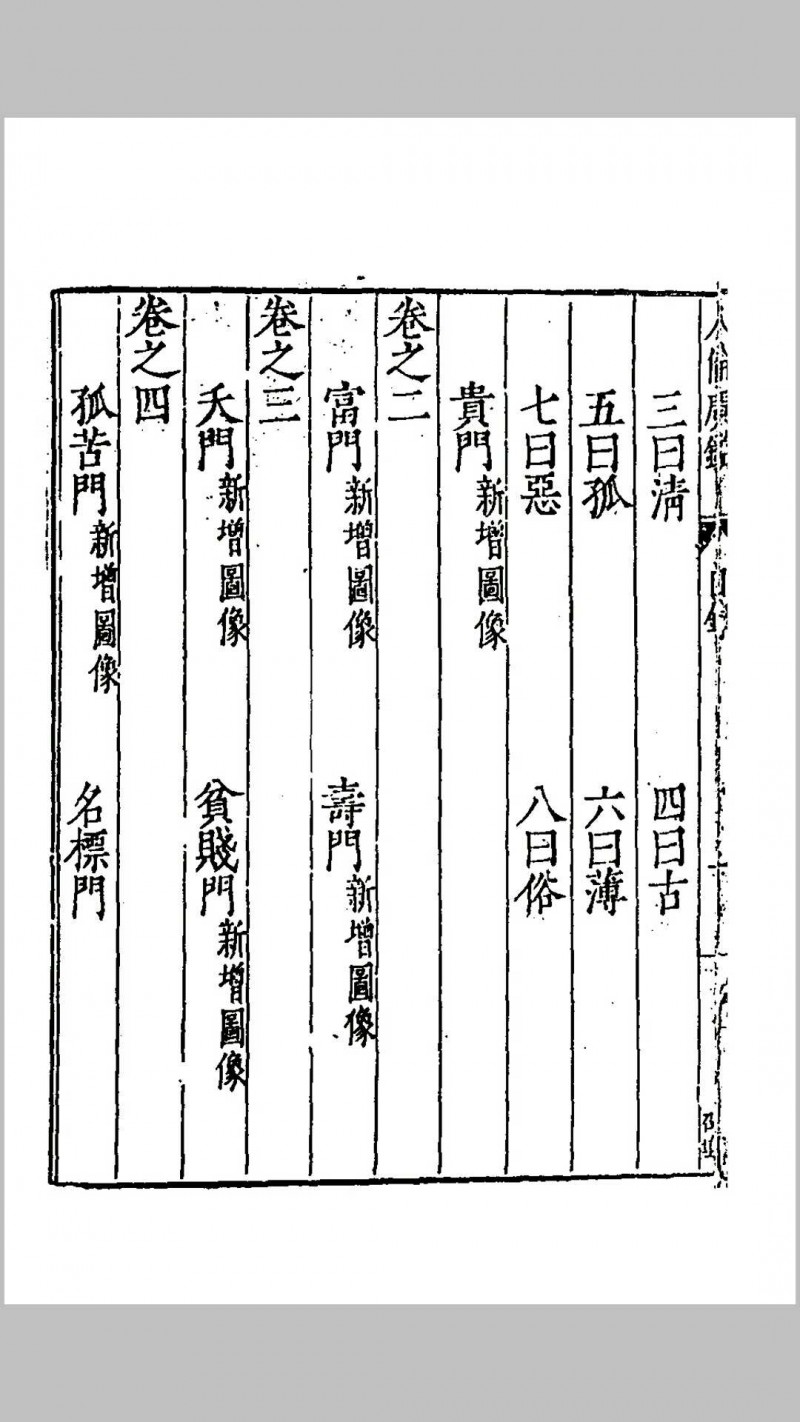 三曰淸　四曰古
五曰孤　六曰薄
七曰惡　八曰俗
貴門新增圖像
卷之二
富門新增圖像　壽門新增圖像
卷之三
夭門新增圖像　貧賤門新增圖像
卷之四
孤苦門新增圖像　名標門